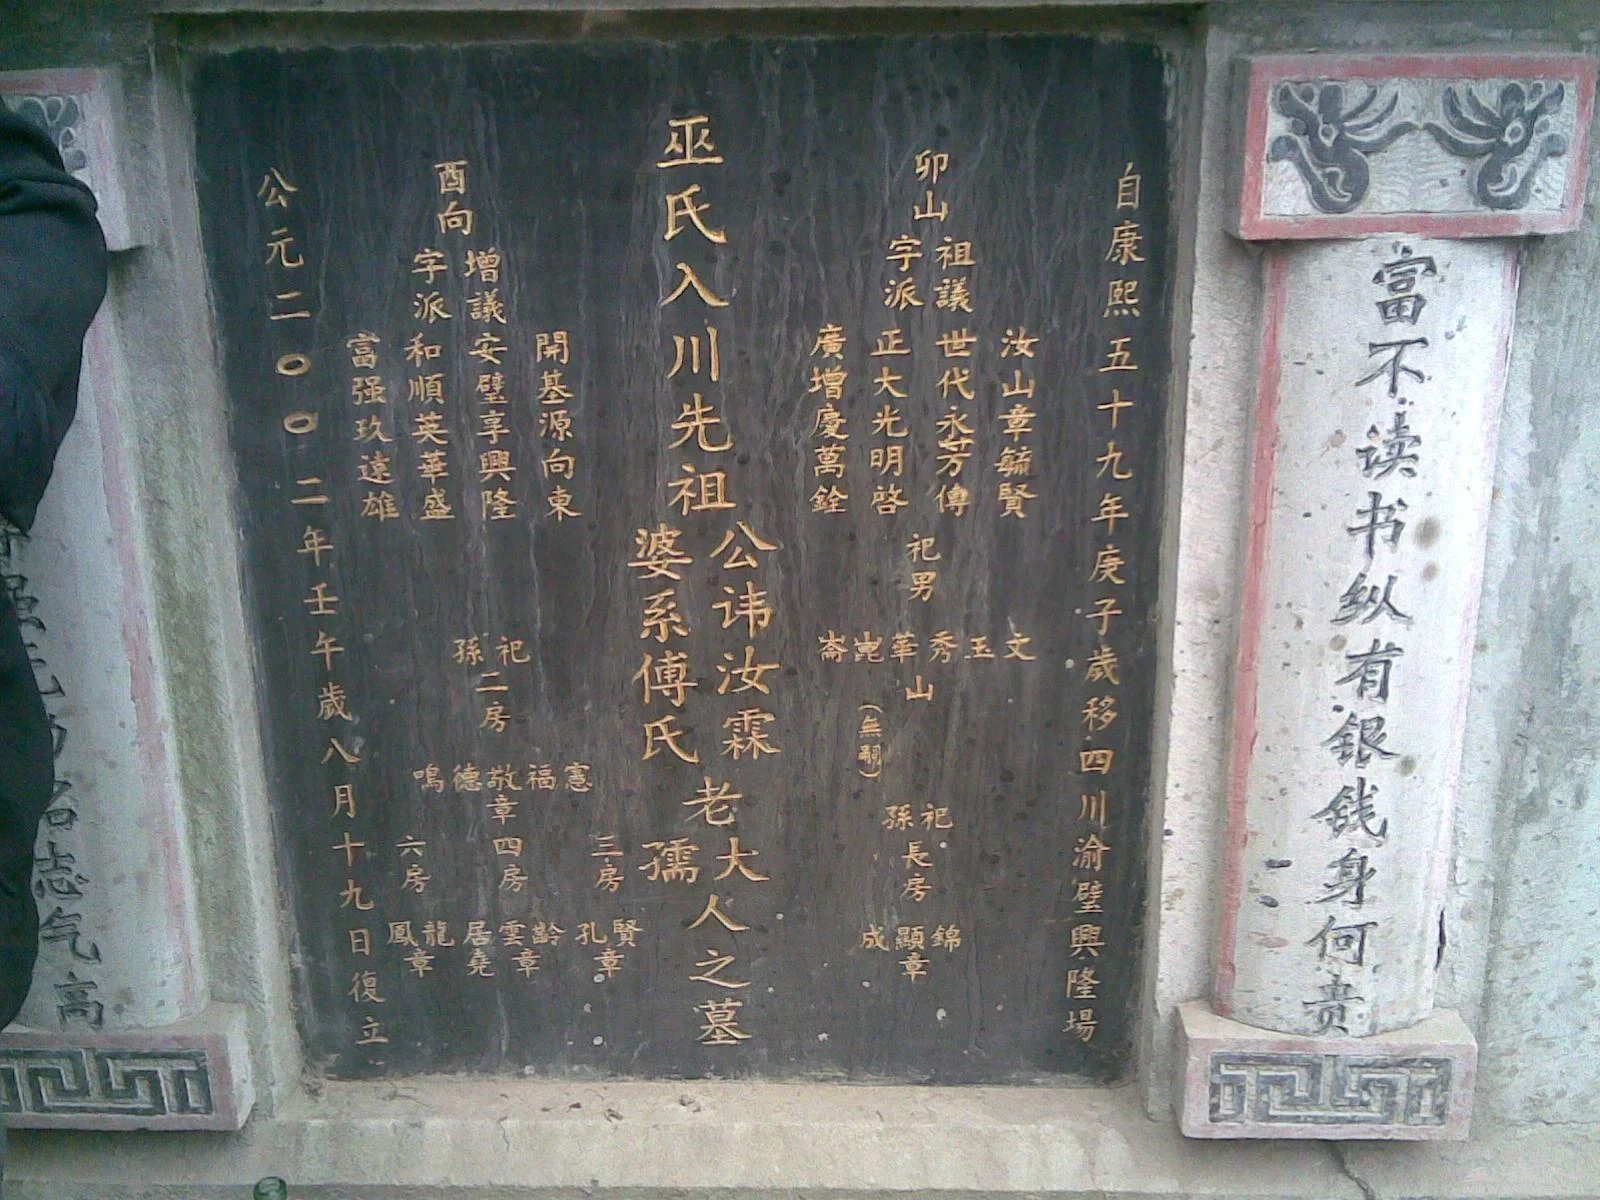 富不读书纵有银钱身何贵
自康熙五十九年庚子歲移四川渝壁興隆場
卯山
祖議
字派
汝山章毓賢
世代永芳傳
正大光明啓
廣增慶萬銓
祀男
文玉秀華崑崙
山
(無嗣)
祀孫長房
錦顯成
章
巫氏入川先祖
公讳汝霖
婆系傅氏
老大人
孺
之墓
酉向
增議
字派
開基源向東
安壁享興隆
和順英華盛
富强玖遠雄
祀孫二房
憲福敬德鳴
章
三房
賢孔
章
四房
齡雲居堯
章
六房
龍鳳
章
公元二00二年壬午年歲八月十九日復立
志气高